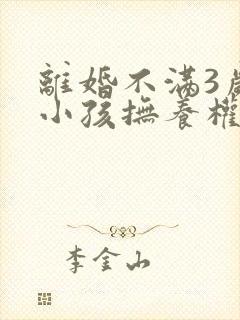 離婚不滿3歲
小孩撫養權
李金山